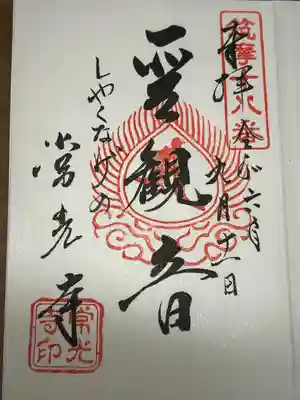 奉拝
令和六年
九月十一日
聖観音
しやくなげの
常光寺
常光寺印